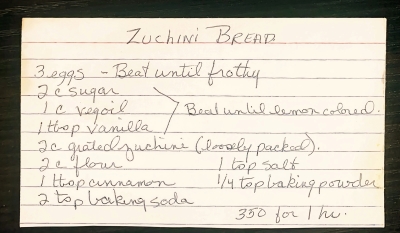 ZUCHINI BREAD
3 eggs - Beat until frothy
2 c sugar
1 c vegoil > Beat until lemon colored.
1 tbsp vanilla
2c grated zuchini (loosely packed).
2 c flour 1 tsp salt
1 tbsp cinnamon 1/4 tsp baking powder
2 tsp baking soda
350 for 1 hr.